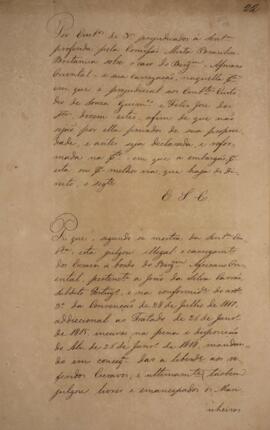 Por Emb.os de 3.os prejudicados à Sent.ça
proferida pela Comissão Mixta Brazileira
Britanica sobre o caso do Berg.m Africano
Oriental e sua carregação, naquella p.te
em que é prejudicial aos
de Souza Guim.es e Felix José dos
S.tos, dizem estes, afim de que não
seja por ella privados de sua proprie
dade, e antes seja declarada, e refor
mada na p.te em que a embarga, e
isto na melhor via que haja de Di
reito, e seg.te
E. S. C.
P. que, segundo se mostra da Sent.ça
esta julgou illegal o carregamento
dos Escravos a bordo do Berg.m Africano Orien
tal, pertencente a João da Silva
subdito Portuguez, e na conformid.e do art.
3.º da Convenção de 28 de Julho de 1817,
addiccional ao Tratado de 22 de Jan.ro
de 1815, incurso na pena e disposição
do Alv. de 26 de Jan.ro de 1818, mandan
do em conseq.a dar a liberd.e aos re
feridos Escravos, e ultimamente, tambem
julgou livres e emancipados os Mari
nheiros